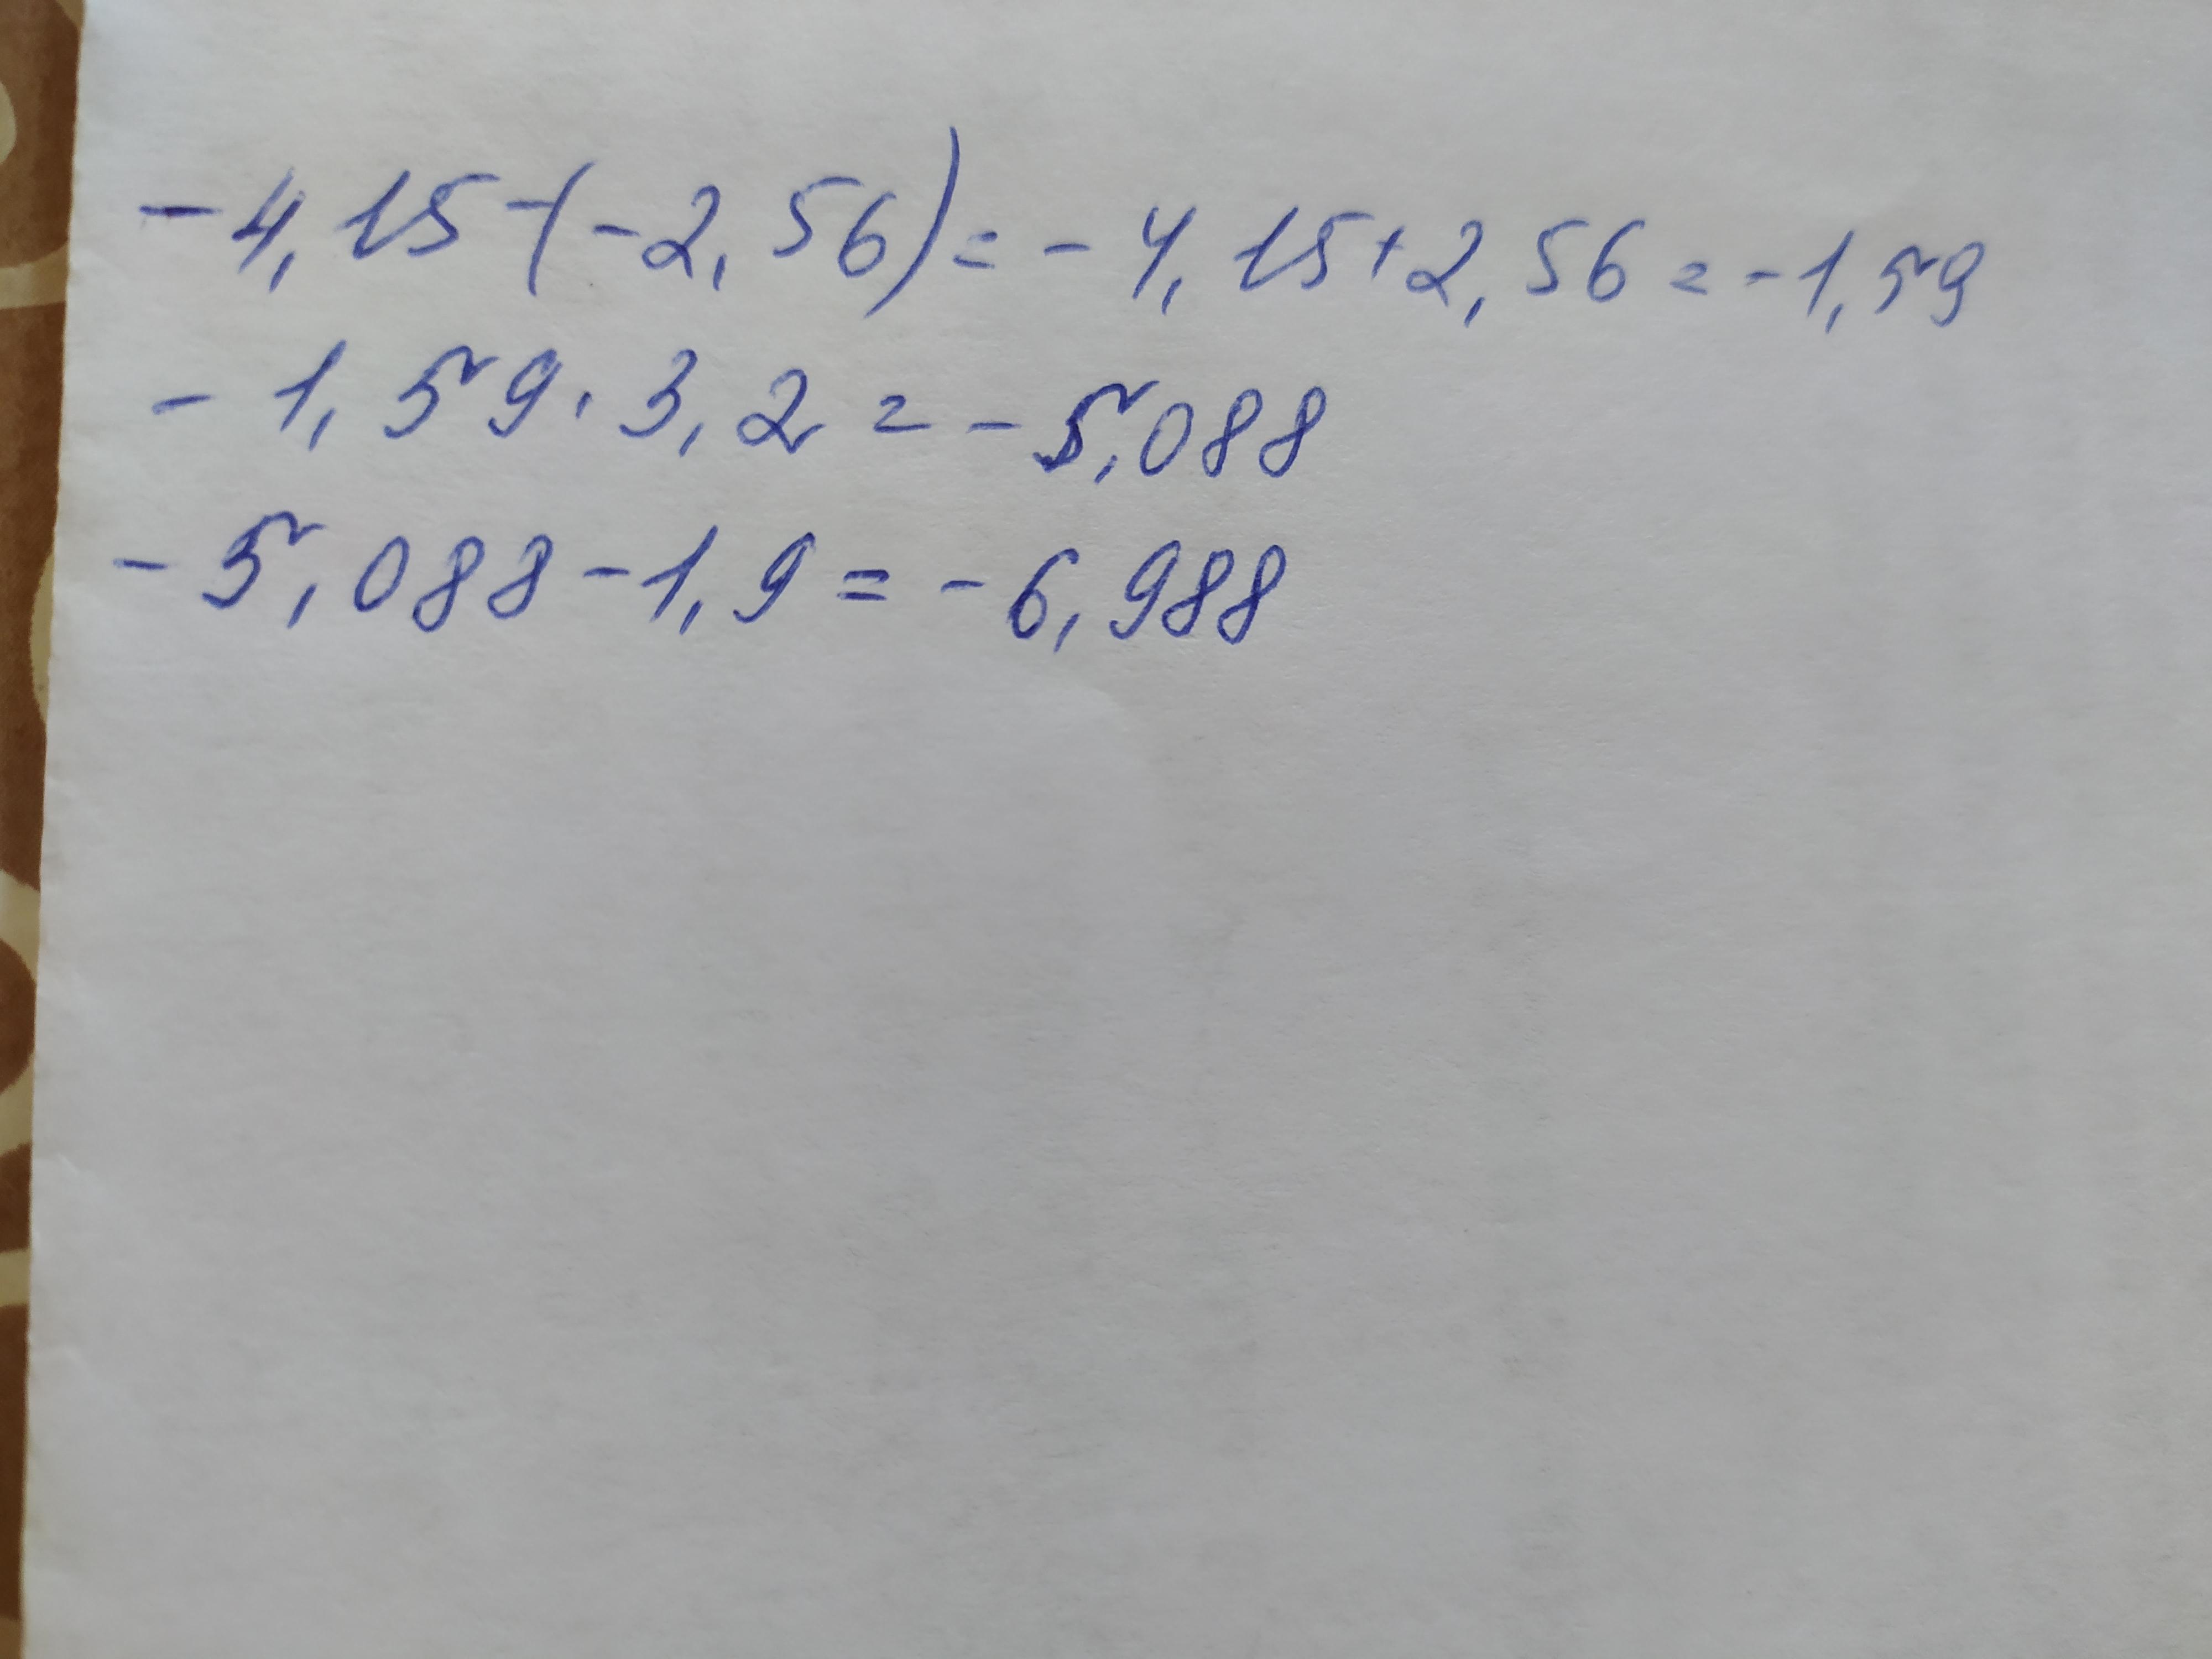 -4,15-(-2,56)=-4,15+2,56=-1,59
-1,59·3,2=-5,088
-5,088-1,9=-6,988